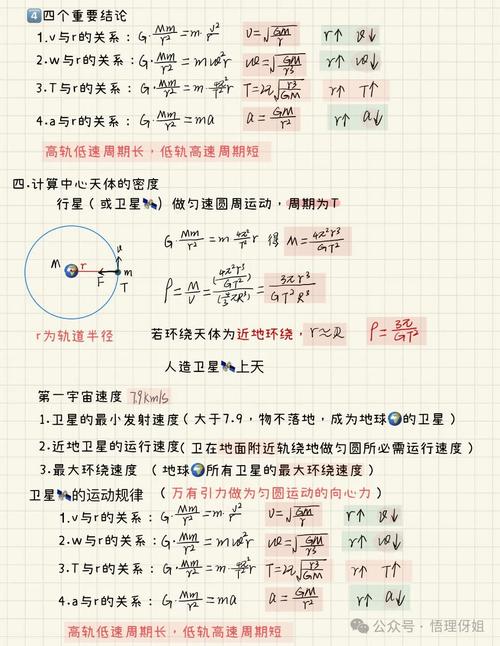 4 四个重要结论
1.v与r的关系：G·Mm/r²=m·v²/r v=√(GM/r) r↑ v↓
2.w与r的关系：G·Mm/r²=mω²r ω=√(GM/r³) r↑ ω↓
3.T与r的关系：G·Mm/r²=m·4π²/T²·r T=2π√(r³/GM) r↑ T↑
4.a与r的关系：G·Mm/r²=ma a=GM/r² r↑ a↓
高轨低速周期长，低轨高速周期短
四.计算中心天体的密度
行星（或卫星🛰）做匀速圆周运动，周期为T
G·Mm/r²=m 4π²/T² r 得 M=4π²r³/GT²
M r F m T
ρ=M/V=(4π²r³/GT²)/(4/3πR³)=3πr³/GT²R³
r为轨道半径
若环绕天体为近地环绕，r≈R ρ=3π/GT²
人造卫星🛰上天
第一宇宙速度 7.9km/s
1.卫星的最小发射速度（大于7.9，物不落地，成为地球🌍的卫星）
2.近地卫星的运行速度（卫在地面附近轨绕地做匀圆所必需运行速度）
3.最大环绕速度 （地球🌍所有卫星的最大环绕速度）
卫星🛰的运动规律 （万有引力做为匀圆运动的向心力）
1.v与r的关系：G·Mm/r²=m·v²/r v=√(GM/r) r↑ v↓
2.w与r的关系：G·Mm/r²=mω²r ω=√(GM/r³) r↑ ω↓
3.T与r的关系：G·Mm/r²=m·4π²/T²·r T=2π√(r³/GM) r↑ T↑
4.a与r的关系：G·Mm/r²=ma a=GM/r² r↑ a↓
高轨低速周期长，低轨高速周期短
公众号·悟理伢姐